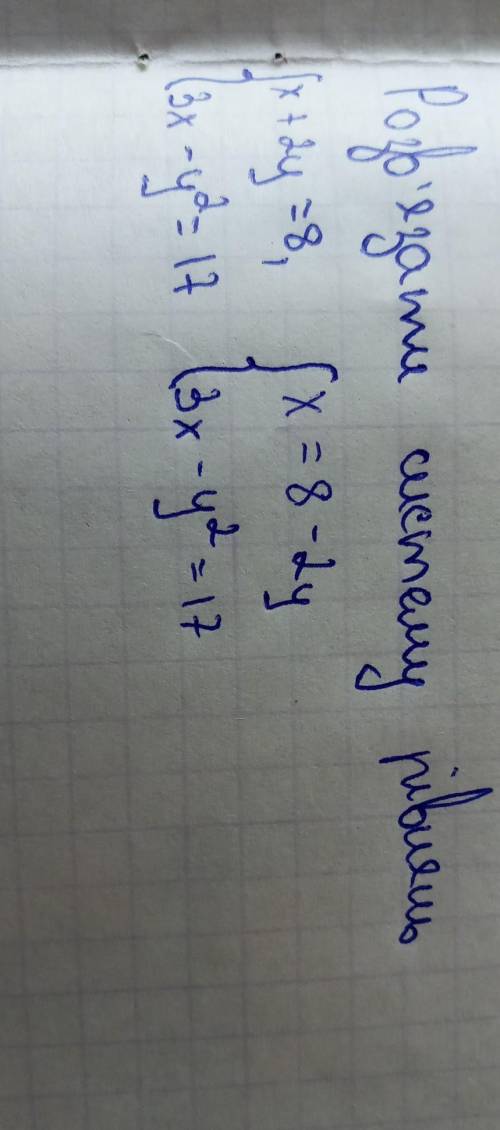 Розв'язати систему рівнянь
{x + 2y = 8, {x = 8 - 2y
{3x - y² = 17 {3x - y² = 17